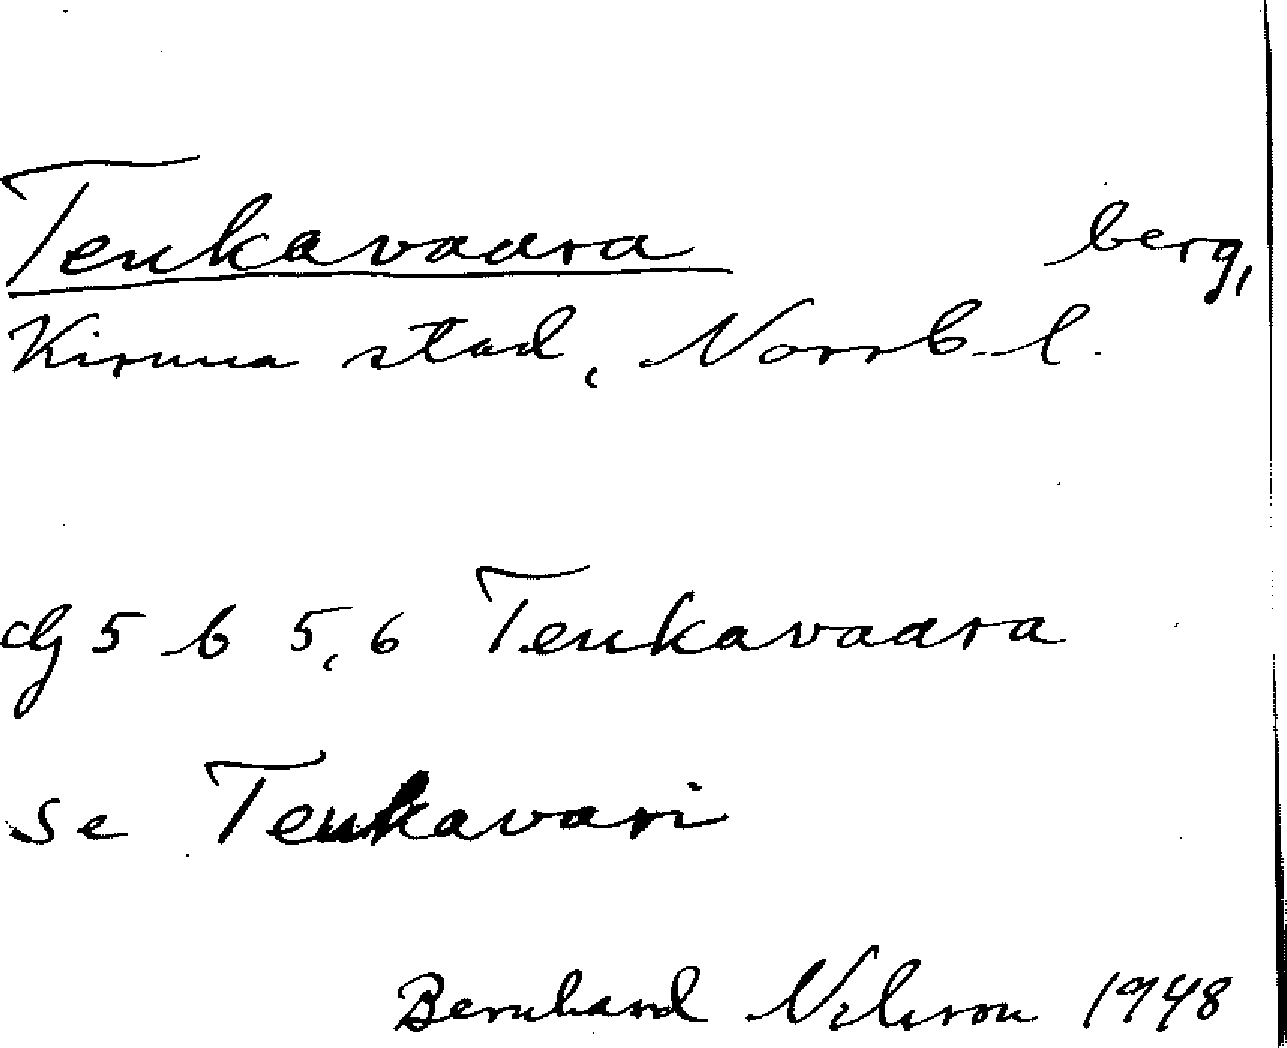 Tenkavaara berg,
Kiruna stad, Norrb. l.
dg 5 b 5,6 Tenkavaara
se Tenkavari
Bernhard Nilsson 1948